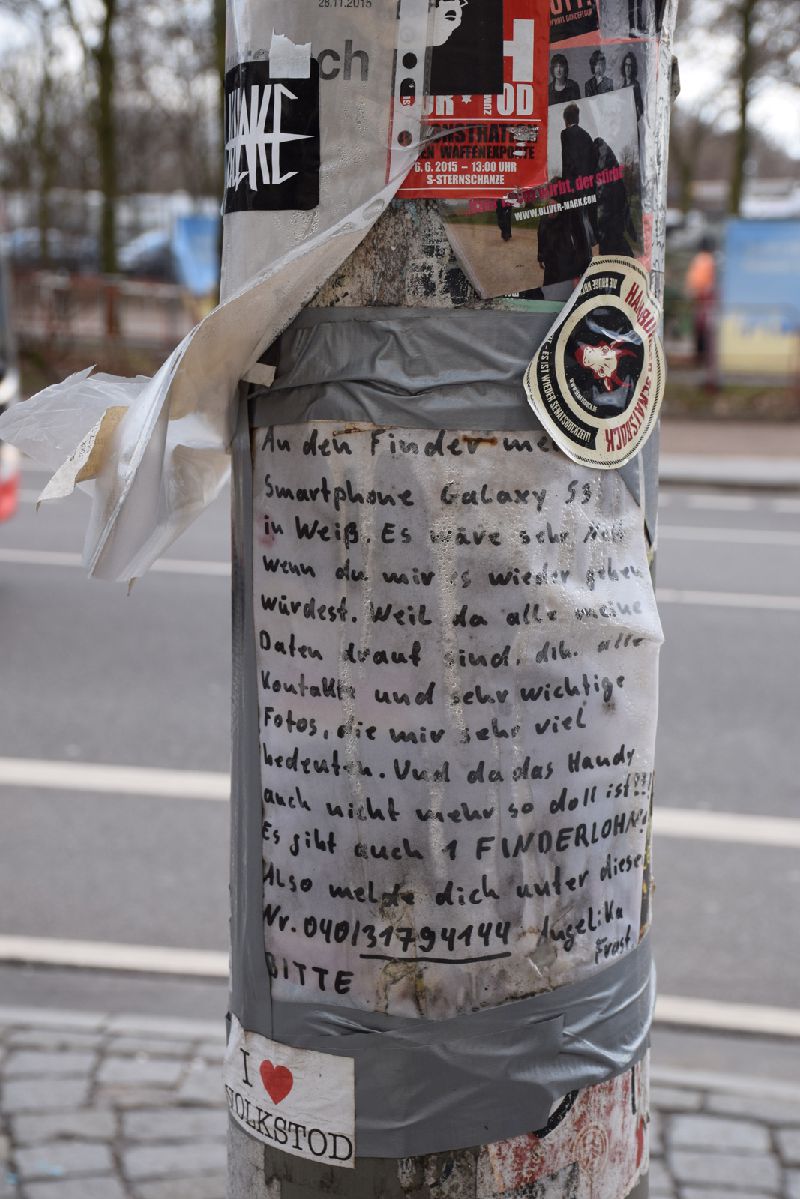 28.11.2015
ch
AKE
TOD
WAFFENEXPORTE
6. 6. 2015 – 13:00 UHR
S-STERNSCHANZE
der stirbt
WWW.OLIVER-MARK.COM
- ES IST WIEDER SCHALTSBOCKZEIT!
An den Finder
Smartphone Galaxy S3
in Weiß. Es wäre sehr Nett
wenn du mir es wieder geben
würdest. Weil da alle meine
Daten drauf sind. dih. alle
Kontakte und sehr wichtige
Fotos, die mir sehr viel
bedeuten. Und da das Handy
auch nicht mehr so doll ist!!!
Es gibt auch 1 FINDERLOHN!
Also melde dich unter diese
Nr. 040/31794144 Angelika
Frost
BITTE
I ♥
VOLKSTOD